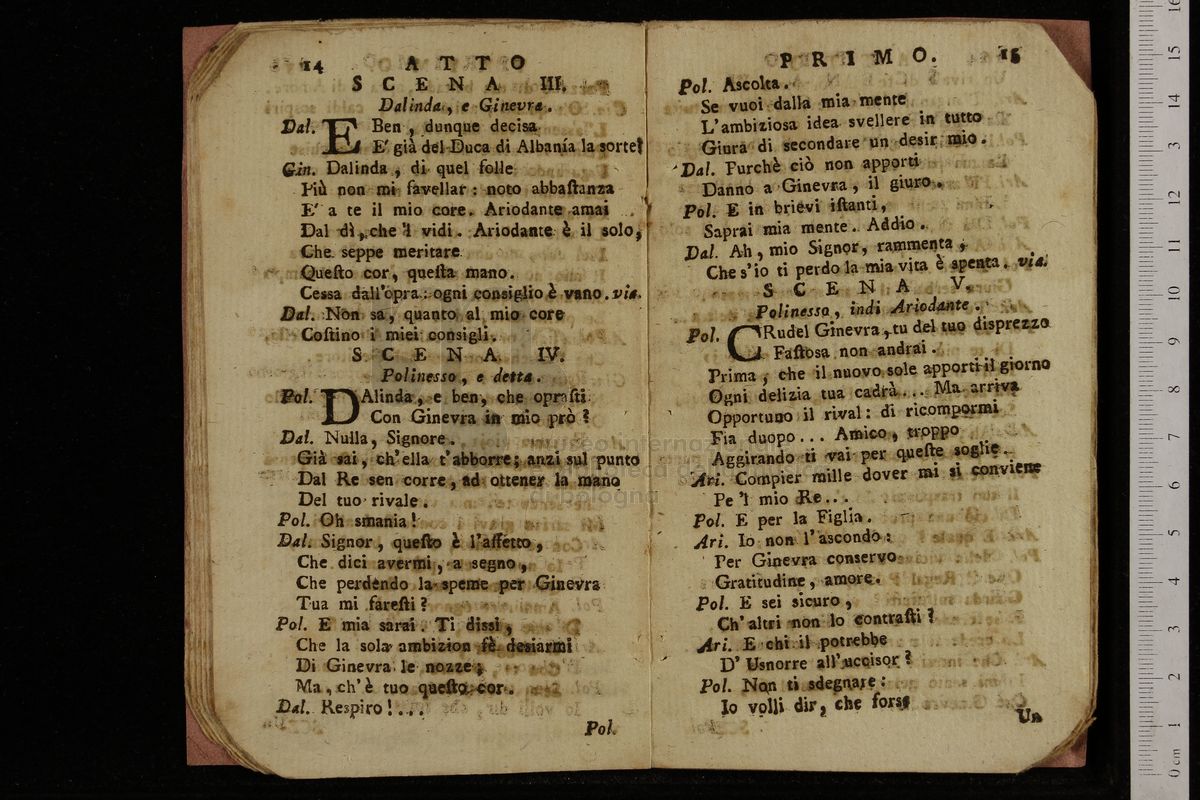 14 ATTO
SCENA III.
Dalinda, e Ginevra.
Dal. E Ben, dunque decisa
E' già del Duca di Albania la sorte?
Gin. Dalinda, di quel folle
Più non mi favellar: noto abbaſtanza
E' a te il mio core. Ariodante amai
Dal dì, che 'l vidi. Ariodante è il solo,
Che seppe meritare
Queſto cor, queſta mano.
Cessa dall'opra: ogni consiglio è vano. via.
Dal. Non sa, quanto al mio core
Coſtino i miei consigli.
SCENA IV.
Polinesso, e detta.
Pol. DAlinda, e ben, che opraſti
Con Ginevra in mio prò?
Dal. Nulla, Signore.
Già sai, ch'ella t'abborre; anzi sul punto
Dal Re sen corre, ad ottener la mano
Del tuo rivale.
Pol. Oh smania!
Dal. Signor, queſto è l'affetto,
Che dici avermi, a segno,
Che perdendo la speme per Ginevra
Tua mi fareſti?
Pol. E mia sarai. Ti dissi,
Che la sola ambizion fè desiarmi
Di Ginevra le nozze;
Ma, ch'è tuo queſto cor.
Dal. Respiro!...
Pol.
PRIMO. 15
Pol. Ascolta.
Se vuoi dalla mia mente
L'ambiziosa idea svellere in tutto
Giura di secondare un desir mio.
Dal. Purchè ciò non apporti
Danno a Ginevra, il giuro.
Pol. E in brievi iſtanti,
Saprai mia mente. Addio.
Dal. Ah, mio Signor, rammenta,
Che s'io ti perdo la mia vita è spenta. via.
SCENA V.
Polinesso, indi Ariodante.
Pol. CRudel Ginevra, tu del tuo disprezzo
Faſtosa non andrai.
Prima, che il nuovo sole apporti il giorno
Ogni delizia tua cadrà... Ma arriva
Opportuno il rival: di ricompormi
Fia duopo... Amico, troppo
Aggirando ti vai per queſte soglie.
Ari. Compier mille dover mi si conviene
Pe 'l mio Re...
Pol. E per la Figlia.
Ari. Io non l'ascondo:
Per Ginevra conservo
Gratitudine, amore.
Pol. E sei sicuro,
Ch' altri non lo contraſti?
Ari. E chi il potrebbe
D' Usnorre all'uccisor?
Pol. Non ti sdegnare:
Io volli dir, che forse
Un